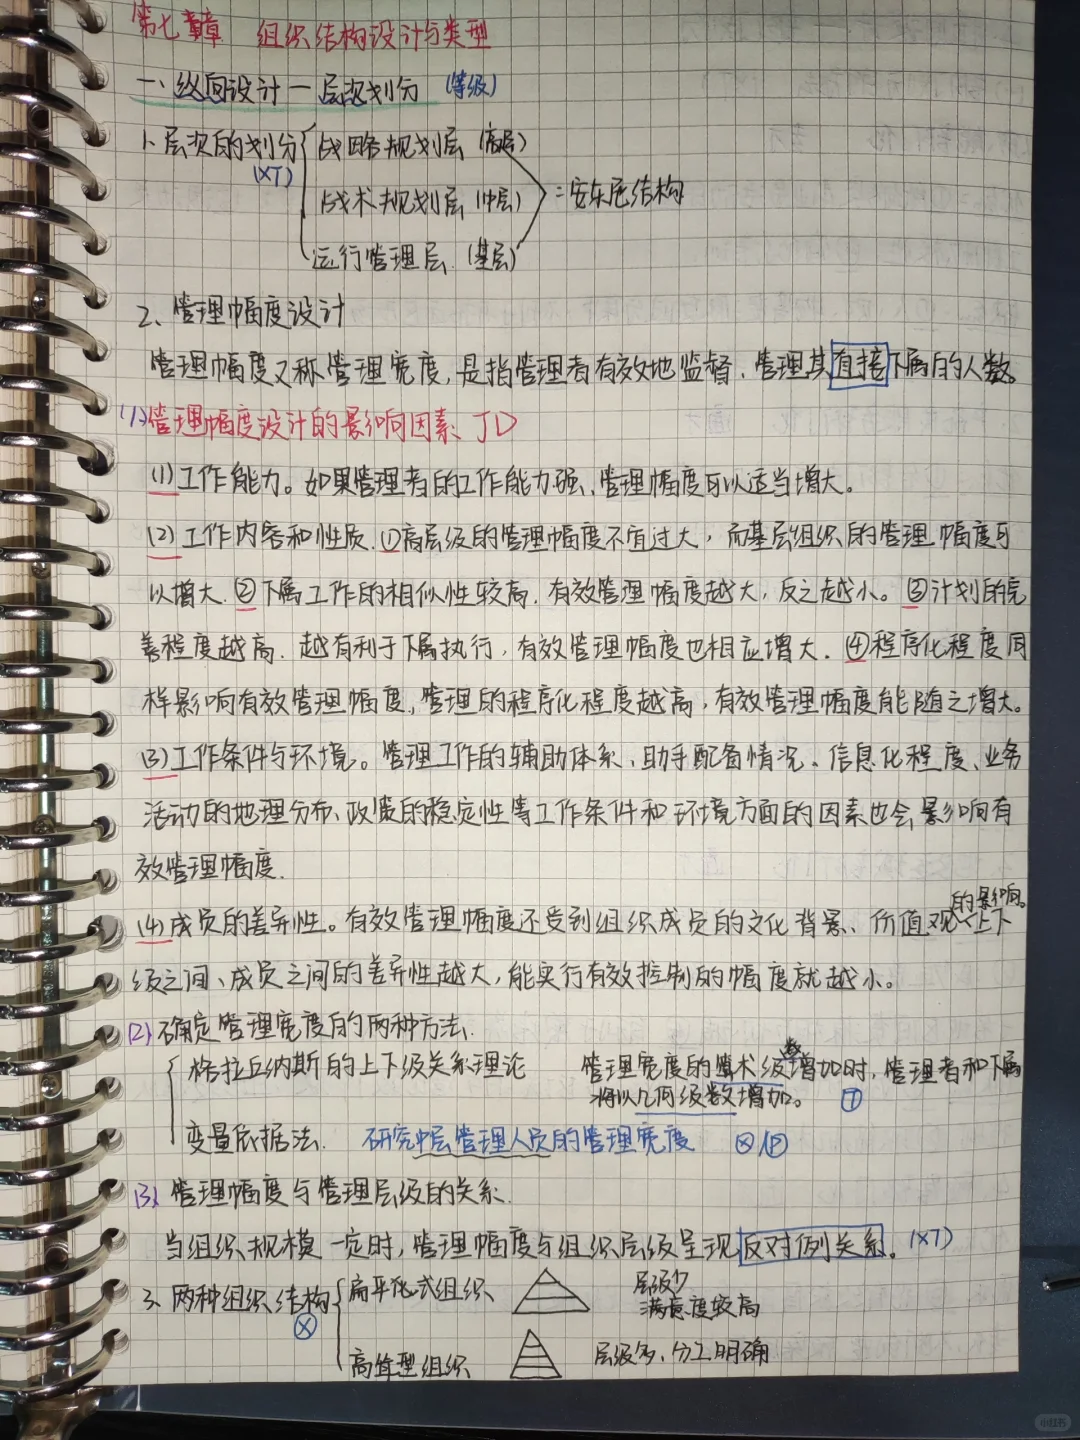 第七章 组织结构设计与类型
一、纵向设计—层次划分 (等级)
1、层次的划分 战略规划层 (高层)
(XT)
战术规划层 (中层) =安东尼结构
运行管理层 (基层)
2、管理幅度设计
管理幅度又称管理宽度,是指管理者有效地监督、管理其直接下属的人数。
(1)管理幅度设计的影响因素 JD
(1)工作能力。如果管理者的工作能力强、管理幅度可以适当增大。
(2)工作内容和性质.①高层级的管理幅度不宜过大,而基层组织的管理幅度可
以增大.②下属工作的相似性较高.有效管理幅度越大,反之越小。③计划的完
善程度越高.越有利于下属执行,有效管理幅度也相应增大.④程序化程度同
样影响有效管理幅度,管理的程序化程度越高,有效管理幅度能随之增大。
(3)工作条件与环境。管理工作的辅助体系、助手配备情况、信息化程度、业务
活动的地理分布、政策的稳定性等工作条件和环境方面的因素也会影响有
效管理幅度.
(4)成员的差异性。有效管理幅度还受到组织成员的文化背景、价值观的影响。上下
级之间、成员之间的差异性越大,能实行有效控制的幅度就越小。
(2)确定管理宽度的两种方法.
格拉丘纳斯的上下级关系理论 管理宽度的算术级数增加时,管理者和下属
将以几何级数增加。
变量依据法. 研究中层管理人员的管理宽度
(3)管理幅度与管理层级的关系.
当组织规模一定时,管理幅度与组织层级呈现反对例关系。(XT)
3、两种组织结构 扁平化式组织 层级少
满意度较高
高耸型组织 层级多、分工明确
小红书